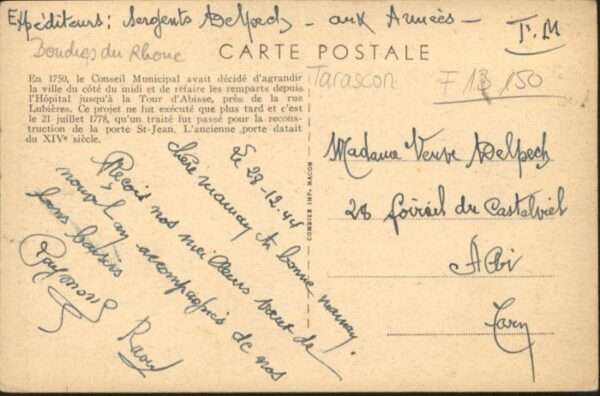 Expéditeurs: Sergents Delpech - aux Armées -
F.M
Bouches du Rhone
CARTE POSTALE
Tarascon
F 13 150
En 1750, le Conseil Municipal avait décidé d'agrandir
la ville du côté du midi et de réfaire les remparts depuis
l'Hôpital jusqu'à la Tour d'Abisse, près de la rue
Lubières. Ce projet ne fut exécuté que plus tard et c'est
le 21 juillet 1778, qu'un traité fut passé pour la recons-
truction de la porte St-Jean. L'ancienne porte datait
du XIVe siècle.
Le 28-12.44
Chère maman et bonne mamay.
Reçois nos meilleurs voeux de
nouvel an accompagnés de nos
bons baisers
Raymond
Raoul
COMBIER IMP. MACON
Madame Veuve Delpech
28 foirail du Castelviel
Albi
Tarn